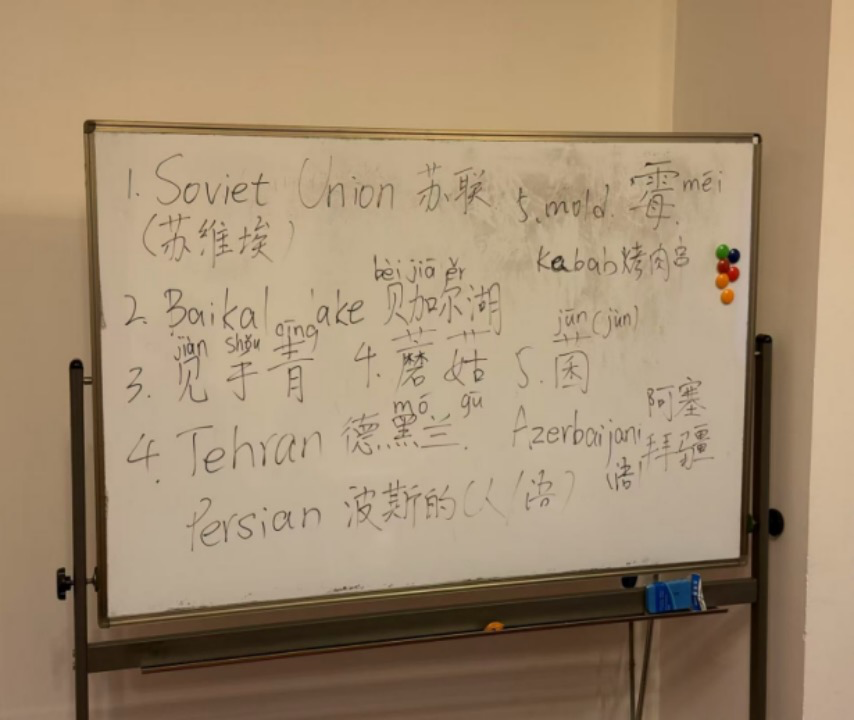 1. Soviet Union 苏联
(苏维埃)
5. mold. 霉 méi
kabab 烤肉
bèi jiā ěr
2. Baikal ake 贝加尔湖
jiàn shǒu qīng
3. 见手青
4. 蘑菇
mó gū
jūn (jùn)
5. 菌
4. Tehran 德黑兰.
Azerbaijani 阿塞
拜疆
(语)
Persian 波斯的(人/语)